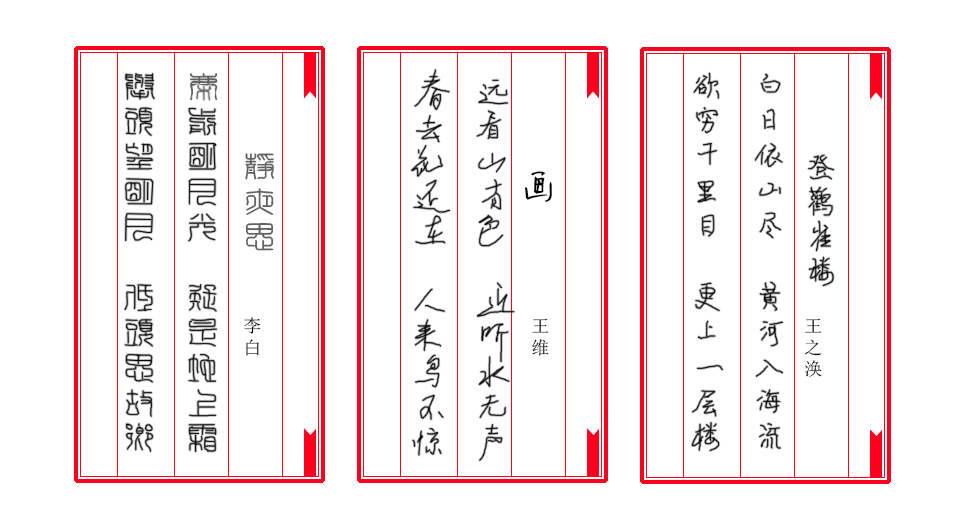 靜夜思
李白
床前明月光 疑是地上霜
舉頭望明月 低頭思故鄉
画
王维
远看山有色 近听水无声
春去花还在 人来鸟不惊
登鹳雀楼
王之涣
白日依山尽 黄河入海流
欲穷千里目 更上一层楼